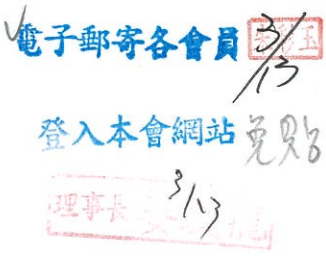 ✓電子郵寄各會員 3/13
登入本會網站 免貼
理事長 3/13